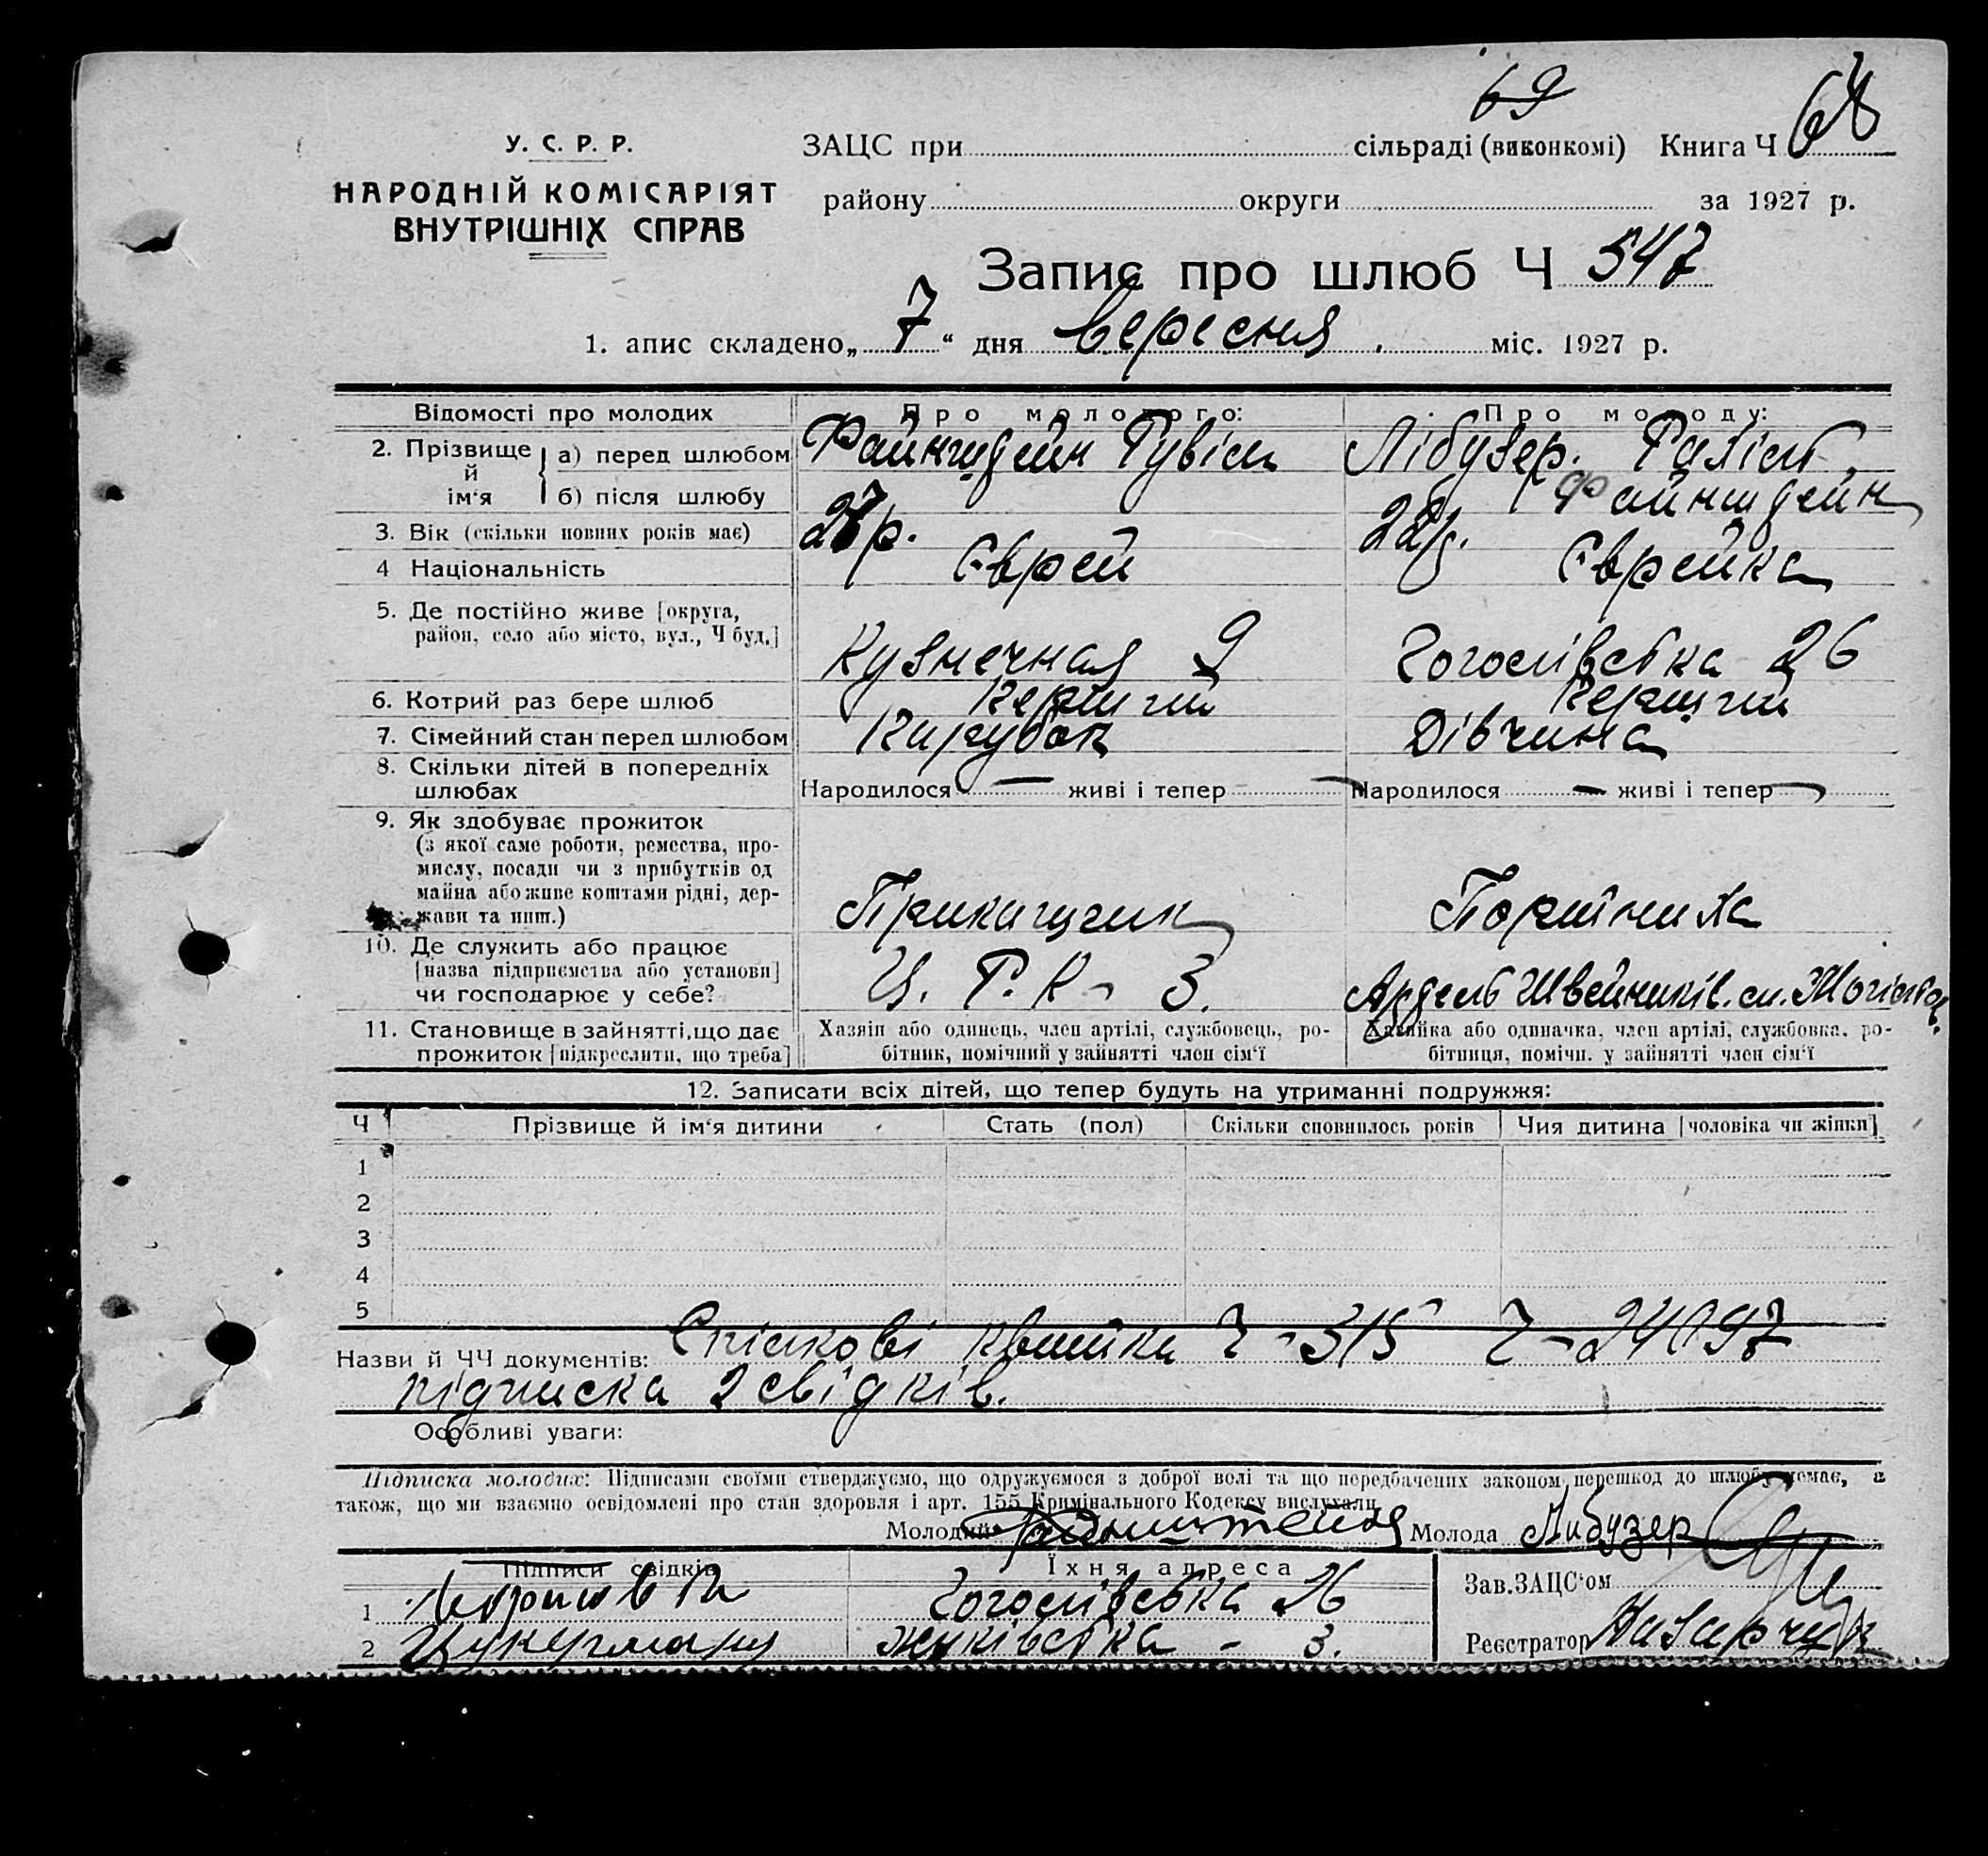 69
У. С. Р. Р.
ЗАЦС при сільраді (виконкомі) Книга Ч 68
НАРОДНІЙ КОМІСАРІЯТ
ВНУТРІШНІХ СПРАВ
району округи за 1927 р.
Запис про шлюб Ч 547
1. апис складено „ 7 “ дня вересня міс. 1927 р.
Відомості про молодих Про молодого: Про молоду:
2. Прізвище й ім‘я а) перед шлюбом Файнштейн Рувін Лібузер.
б) після шлюбу Файнштейн
3. Вік (скільки повних років має) р. 22 р.
4 Національність Єврей Єврейка
5. Де постійно живе [округа,
район, село або місто, вул., Ч буд.] Кузнечная 9 Гоголівська 26
6. Котрий раз бере шлюб Перший Перший
7. Сімейний стан перед шлюбом Парубок Дівчина
8. Скільки дітей в попередніх
шлюбах Народилося — живі і тепер — Народилося — живі і тепер —
9. Як здобуває прожиток
(з якої саме роботи, ремества, про-
мислу, посади чи з прибутків од
майна або живе коштами рідні, дер-
жави та инш.) Прикащик Портниха
10. Де служить або працює
[назва підприємства або установи]
чи господарює у себе? Ц. Р. К - 3. Артель Швейників.
11. Становище в зайнятті, що дає
прожиток [підкреслити, що треба]
Хазяін або одинець, член артілі, службовець, ро-
бітник, помічний у зайнятті член сім‘ї
Хазяйка або одиначка, член артілі, службовка, ро-
бітниця, помічн. у зайнятті член сім‘ї
12. Записати всіх дітей, що тепер будуть на утриманні подружжя:
Ч Прізвище й ім‘я дитини Стать (пол) Скільки сповнилось років Чия дитина [чоловіка чи жінки]
1
2
3
4
5
Назви й ЧЧ документів: Спілкові квитки Ч - 315 Ч - 24097
підписка 2 свідків.
Особливі уваги:
Підписка молодих: Підписами своїми стверджуємо, що одружуємося з доброї волі та що передбачених законом перешкод до шлюбу немає, а
також, що ми взаємно освідомлені про стан здоровля і арт. 155 Кримінального Кодексу вислухали
Молодий Файнштейн Молода Либузер
Підписи свідків Їхня адреса
Зав. ЗАЦС‘ом
1 Гоголівська 26
2 Цукерман Жуківська - 3.
Реєстратор Назарчук